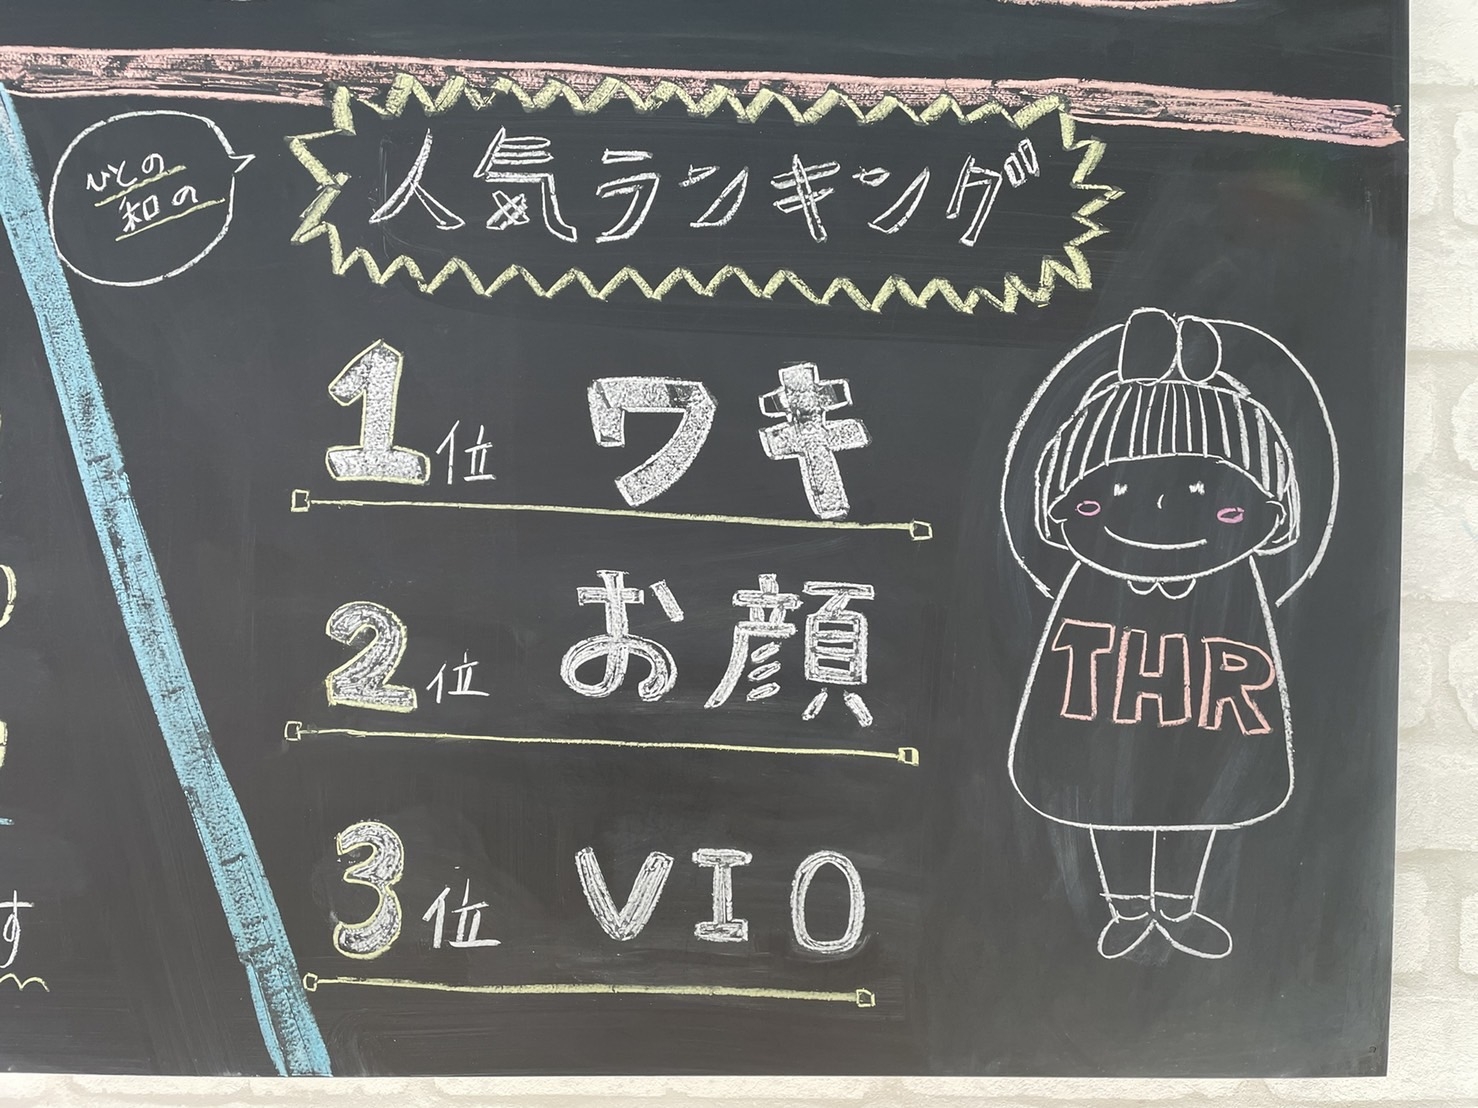 ひとの
和の
人気ランキング
1位 ワキ
2位 お顔
3位 VIO
THR
す